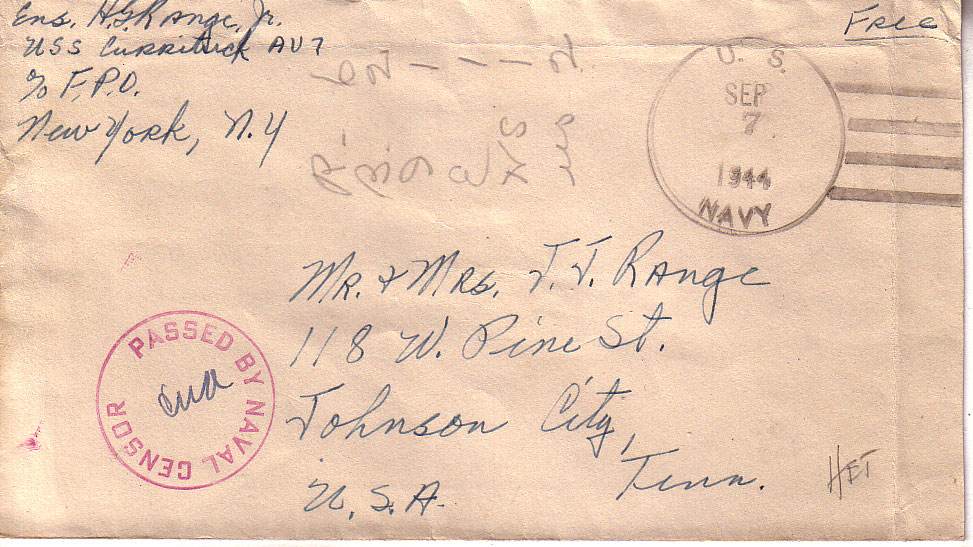 Ens. H.G. Range, Jr.
USS Currituck AV7
c/o F.P.O.
New York, N.Y
Free
U. S.
SEP
7
1944
NAVY
Mr. & Mrs. J. J. Range
118 W. Pine St.
Johnson City,
Tenn.
U.S.A.
PASSED BY NAVAL CENSOR
HET